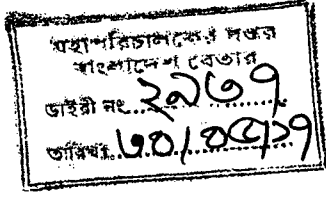 মহাপরিচালকের দপ্তর
বাংলাদেশ বেতার
ডাইরী নং ২৯৩৭
তারিখঃ ৩০/০৫/১৭